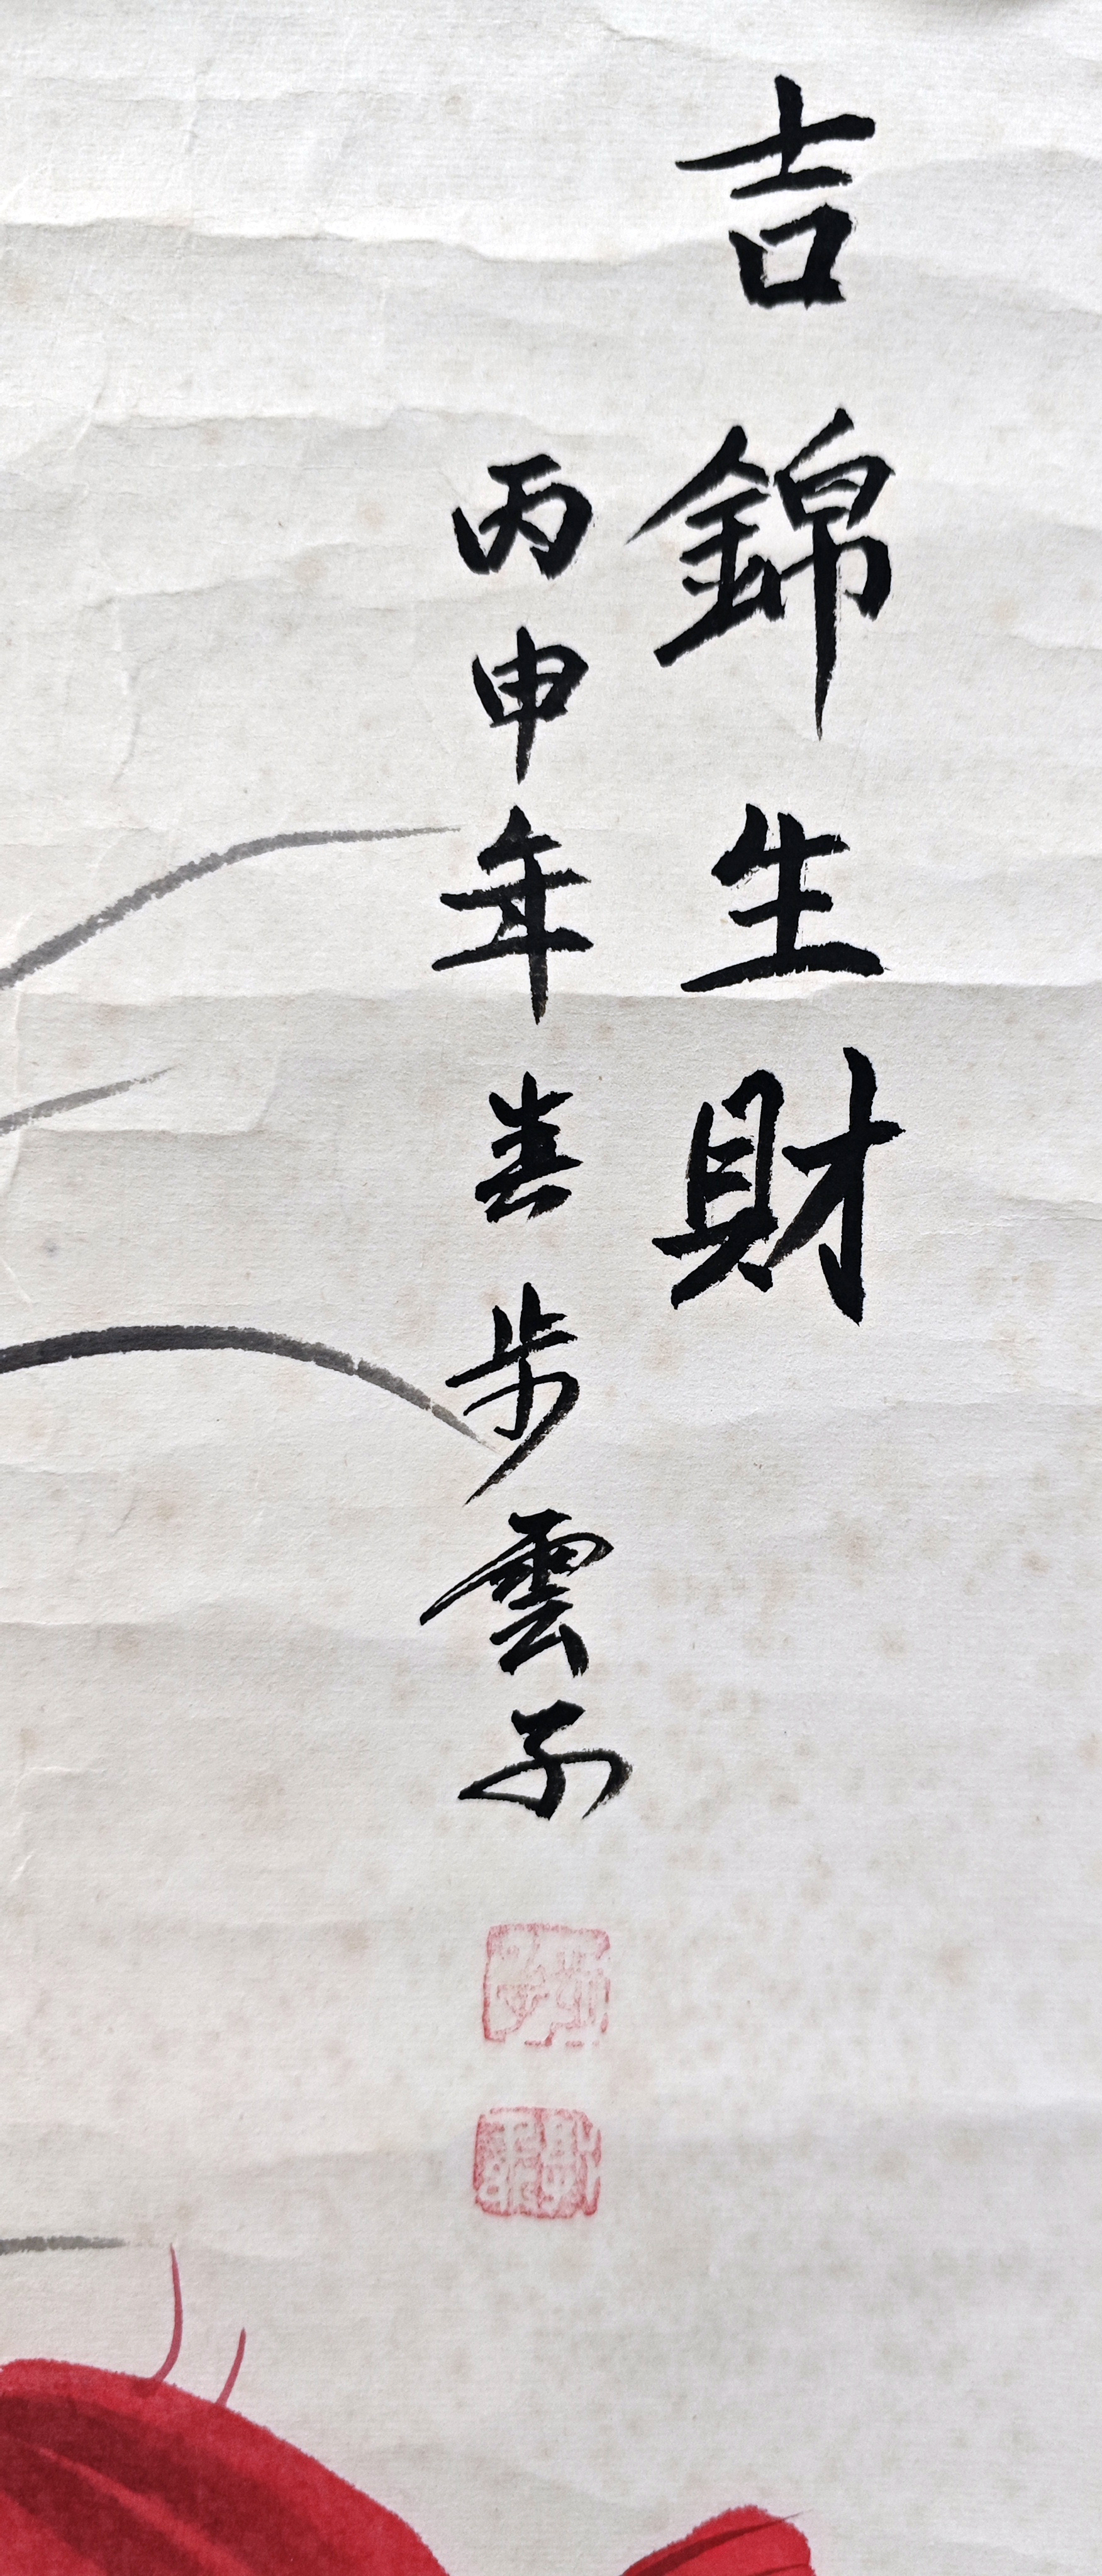 吉錦生財
丙申年春步雲子